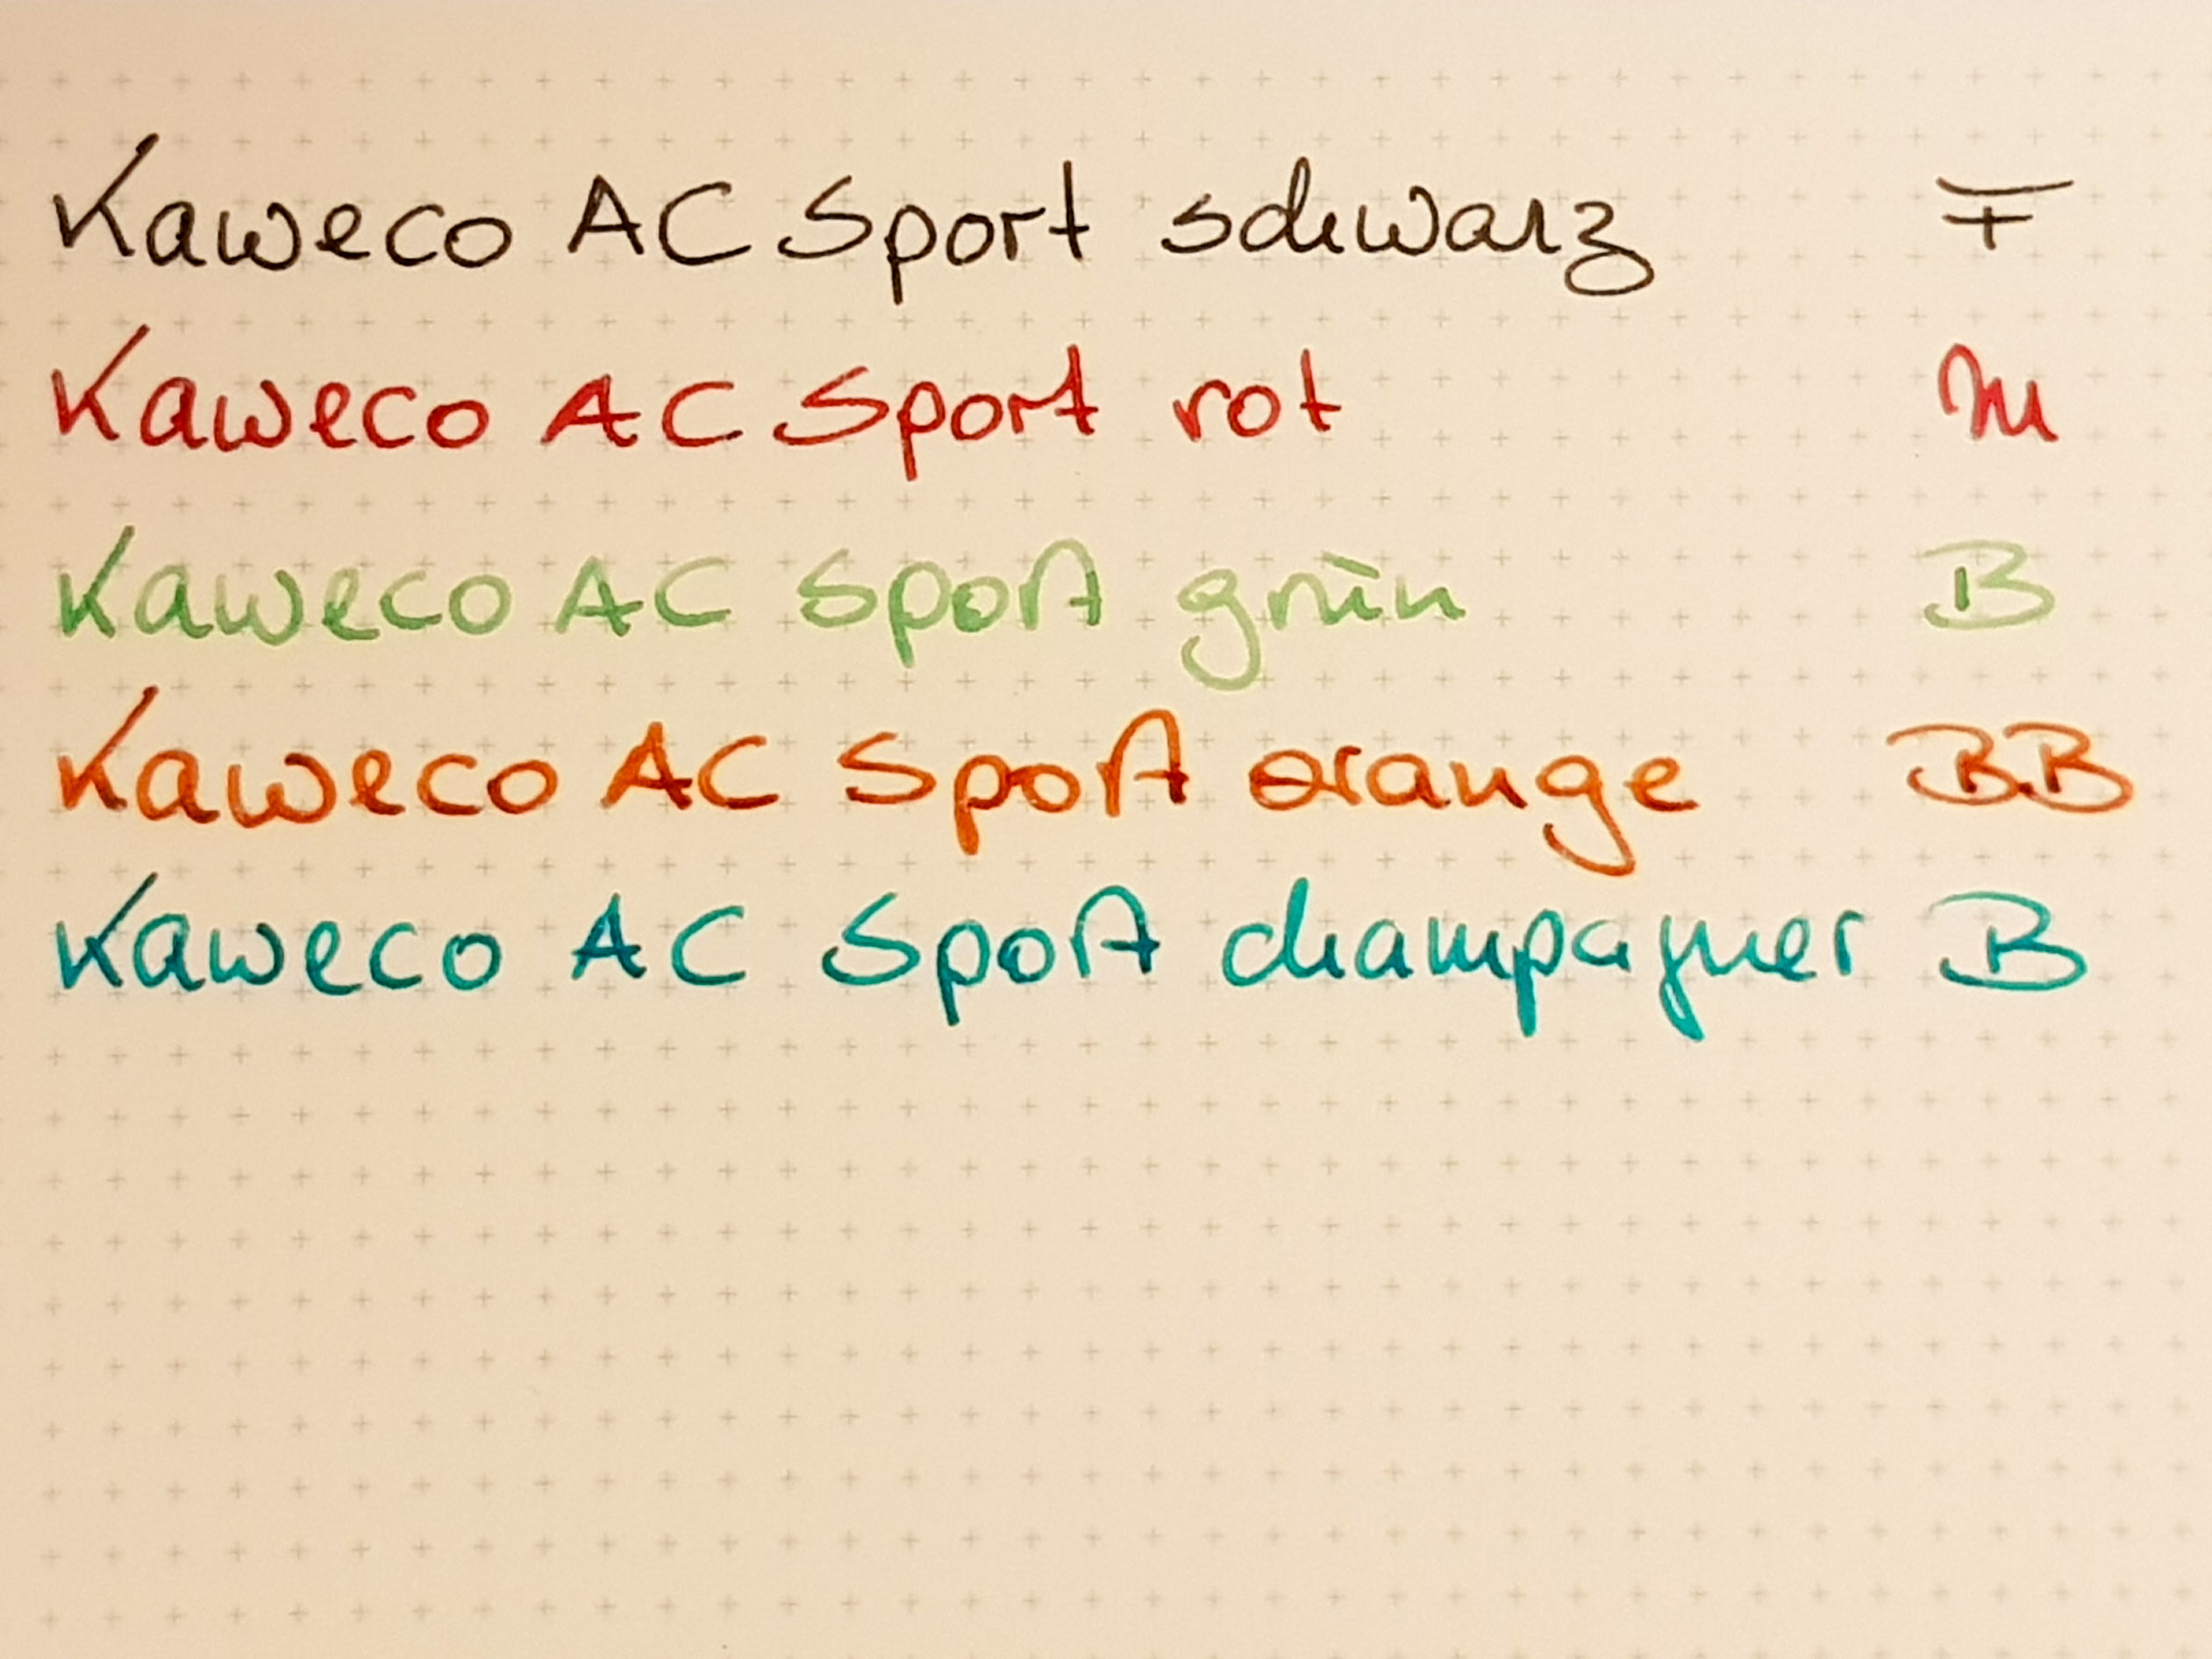 Kaweco AC Sport schwarz F
Kaweco AC Sport rot M
Kaweco AC Sport grün B
Kaweco AC Sport orange BB
Kaweco AC Sport champagner B